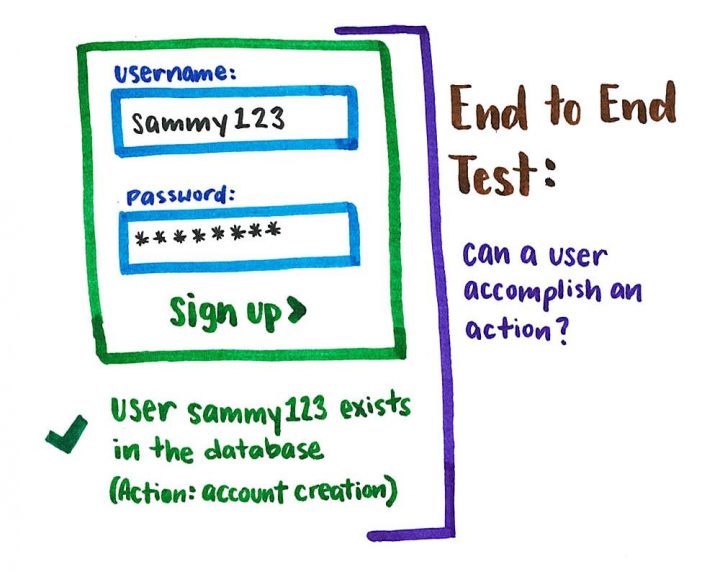 username:
sammy123
password:
********
sign up >
user sammy123 exists
in the database
(Action: account creation)
End to End
Test:
can a user
accomplish an
action?